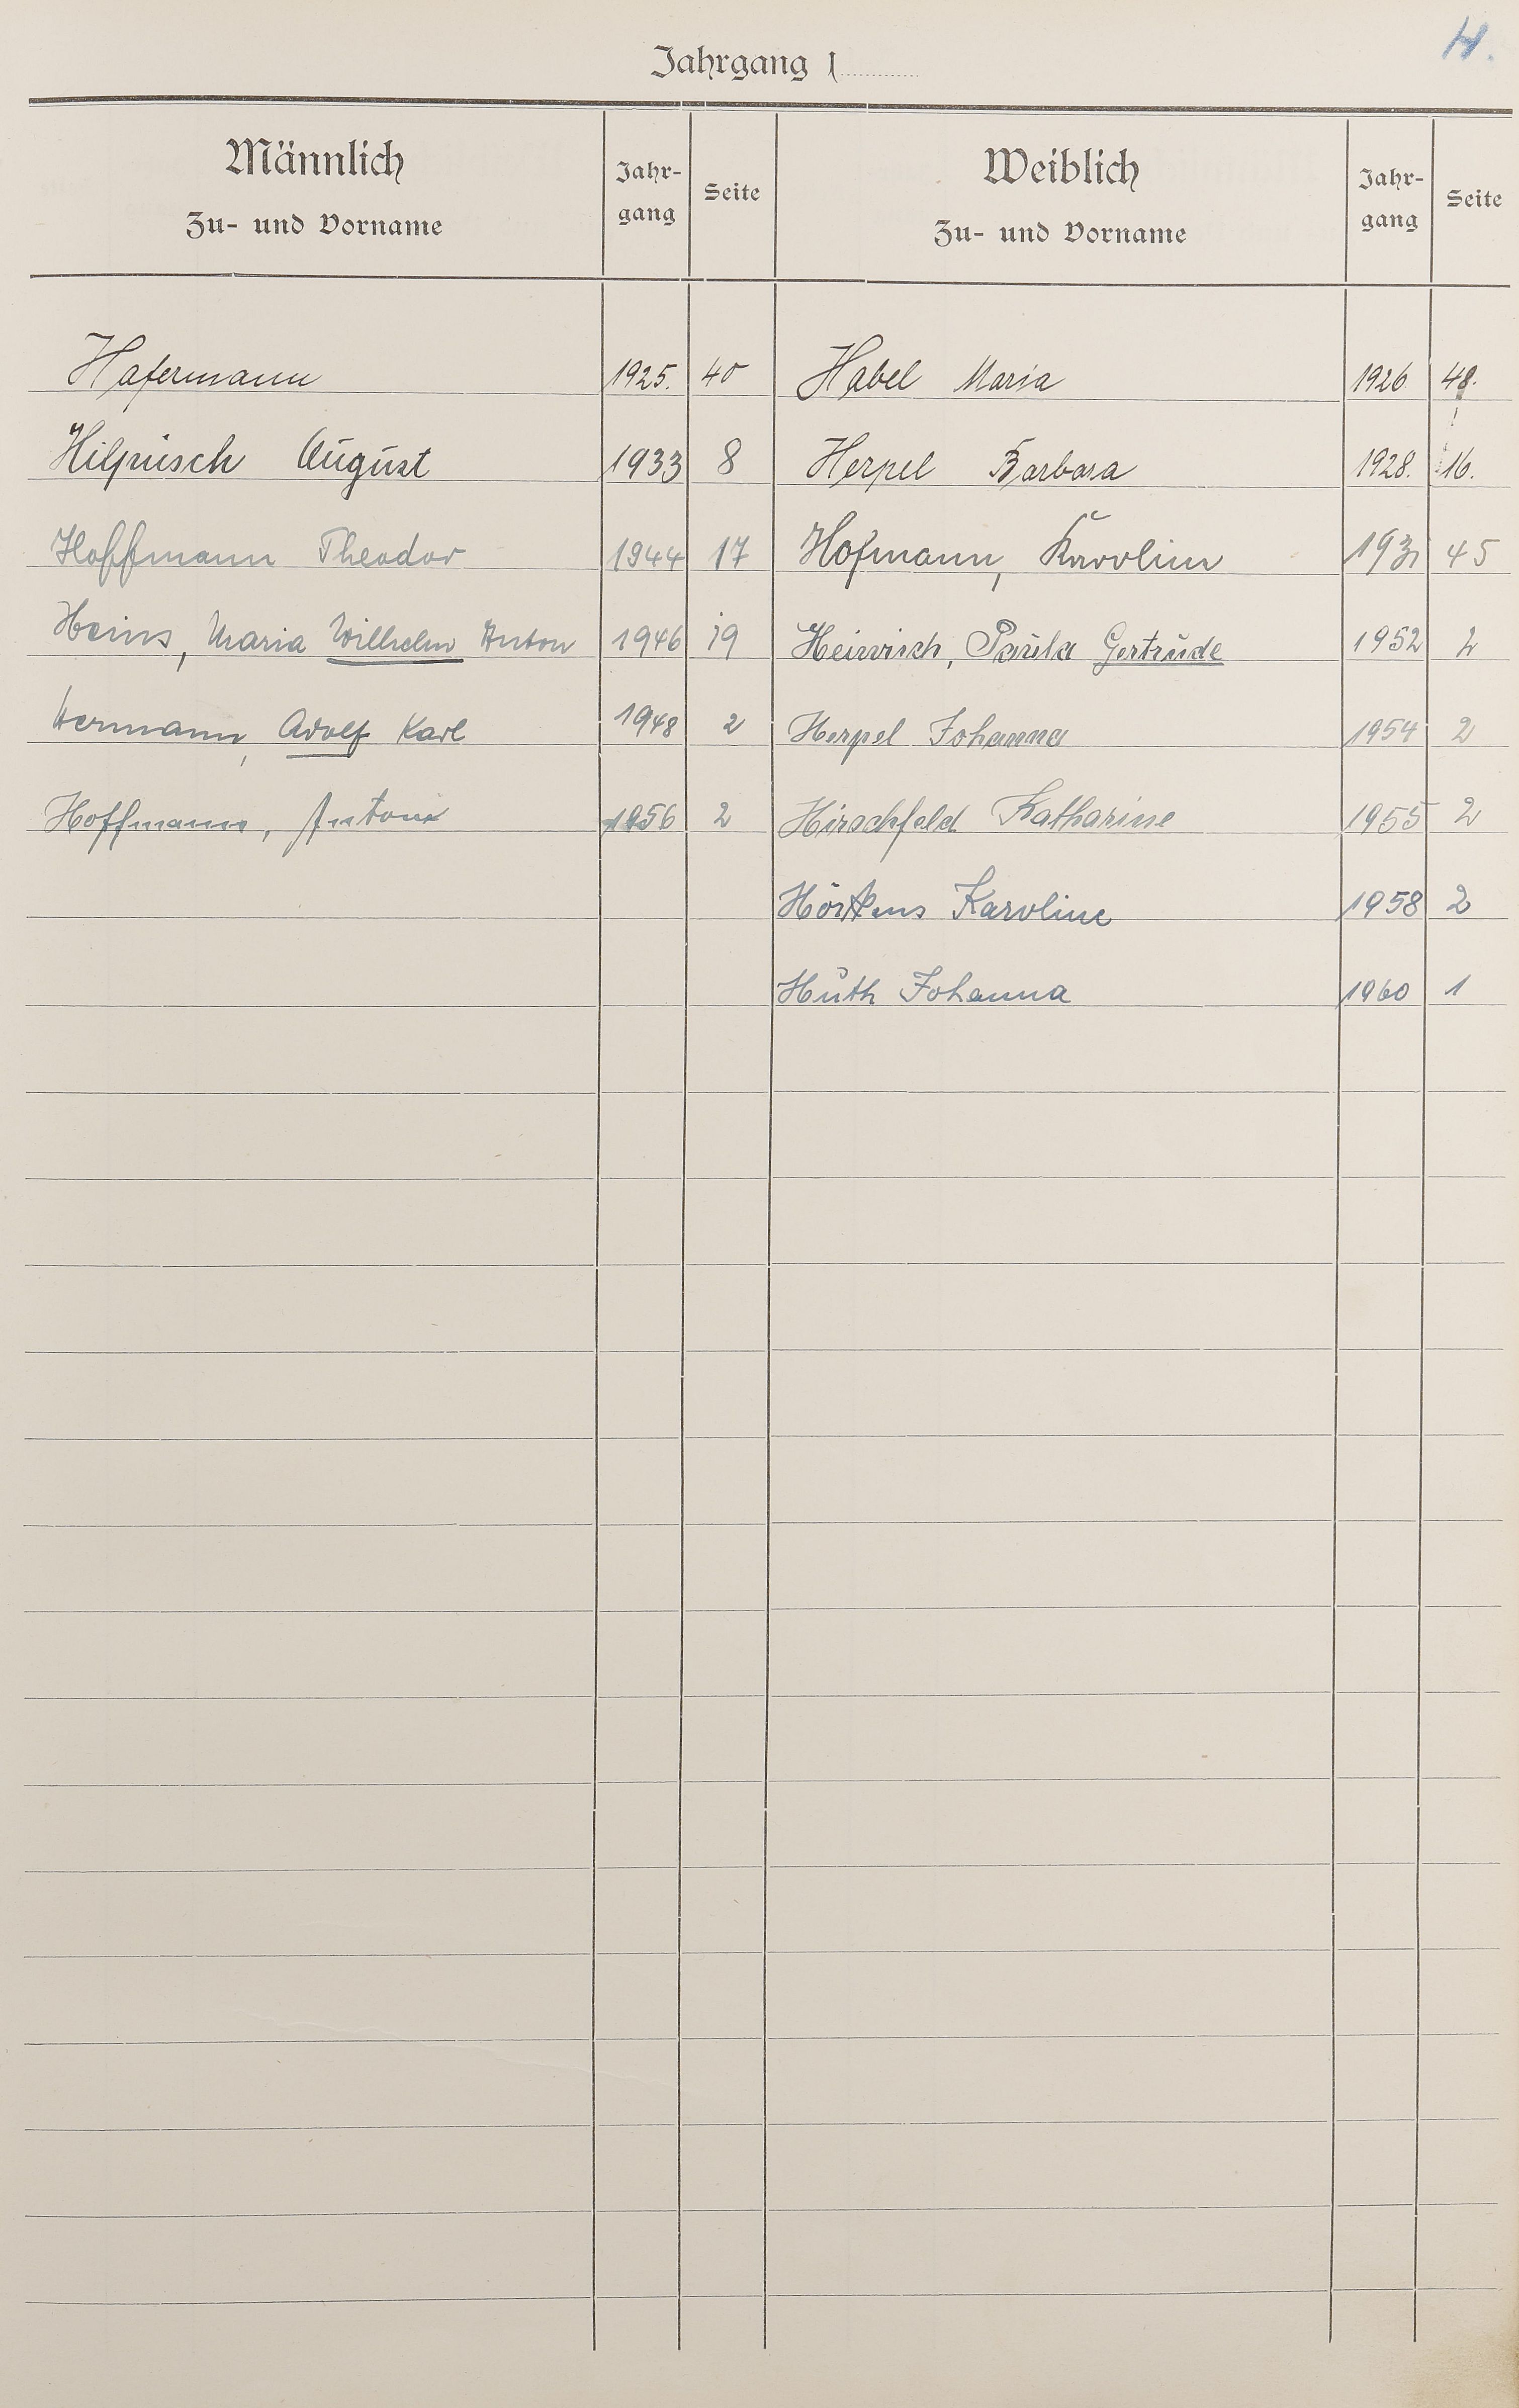 H.
Jahrgang 1
Männlich Zu- und Vorname Jahr-gang Seite Weiblich Zu- und Vorname Jahr-gang Seite
Hafermann 1925. 40 Habel Maria 1926 48.
Hilpüsch August 1933 8 Herpel Barbara 1928. 16.
Hoffmann Theodor 1944 17 Hofmann, Karolin 1931 45
Heins, Maria Wilhelm Anton 1946 19 Heinrich, Paula Gertrude 1952 2
Hermann, Adolf Karl 1948 2 Herpel Johanna 1954 2
Hoffmann, Anton 1956 2 Hirschfeld Katharine 1955 2
Karoline 1958 2
Huth Johanna 1960 1